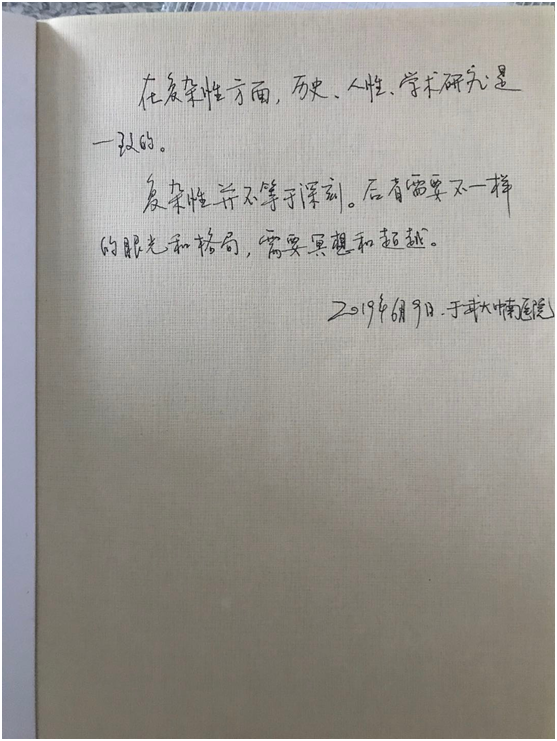 在复杂性方面，历史、人性、学术研究是
一致的。
复杂性并不等于深刻。后者需要不一样
的眼光和格局，需要冥想和超越。
2019年6月9日.于武大中南医院